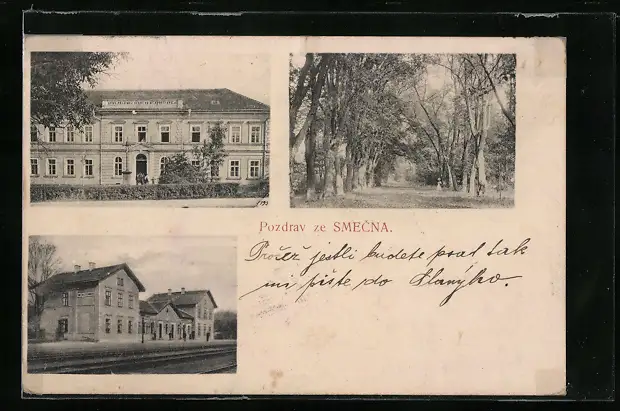 Pozdrav ze SMEČNA.
jestli budete psat tak
mi pište do Slanýho.